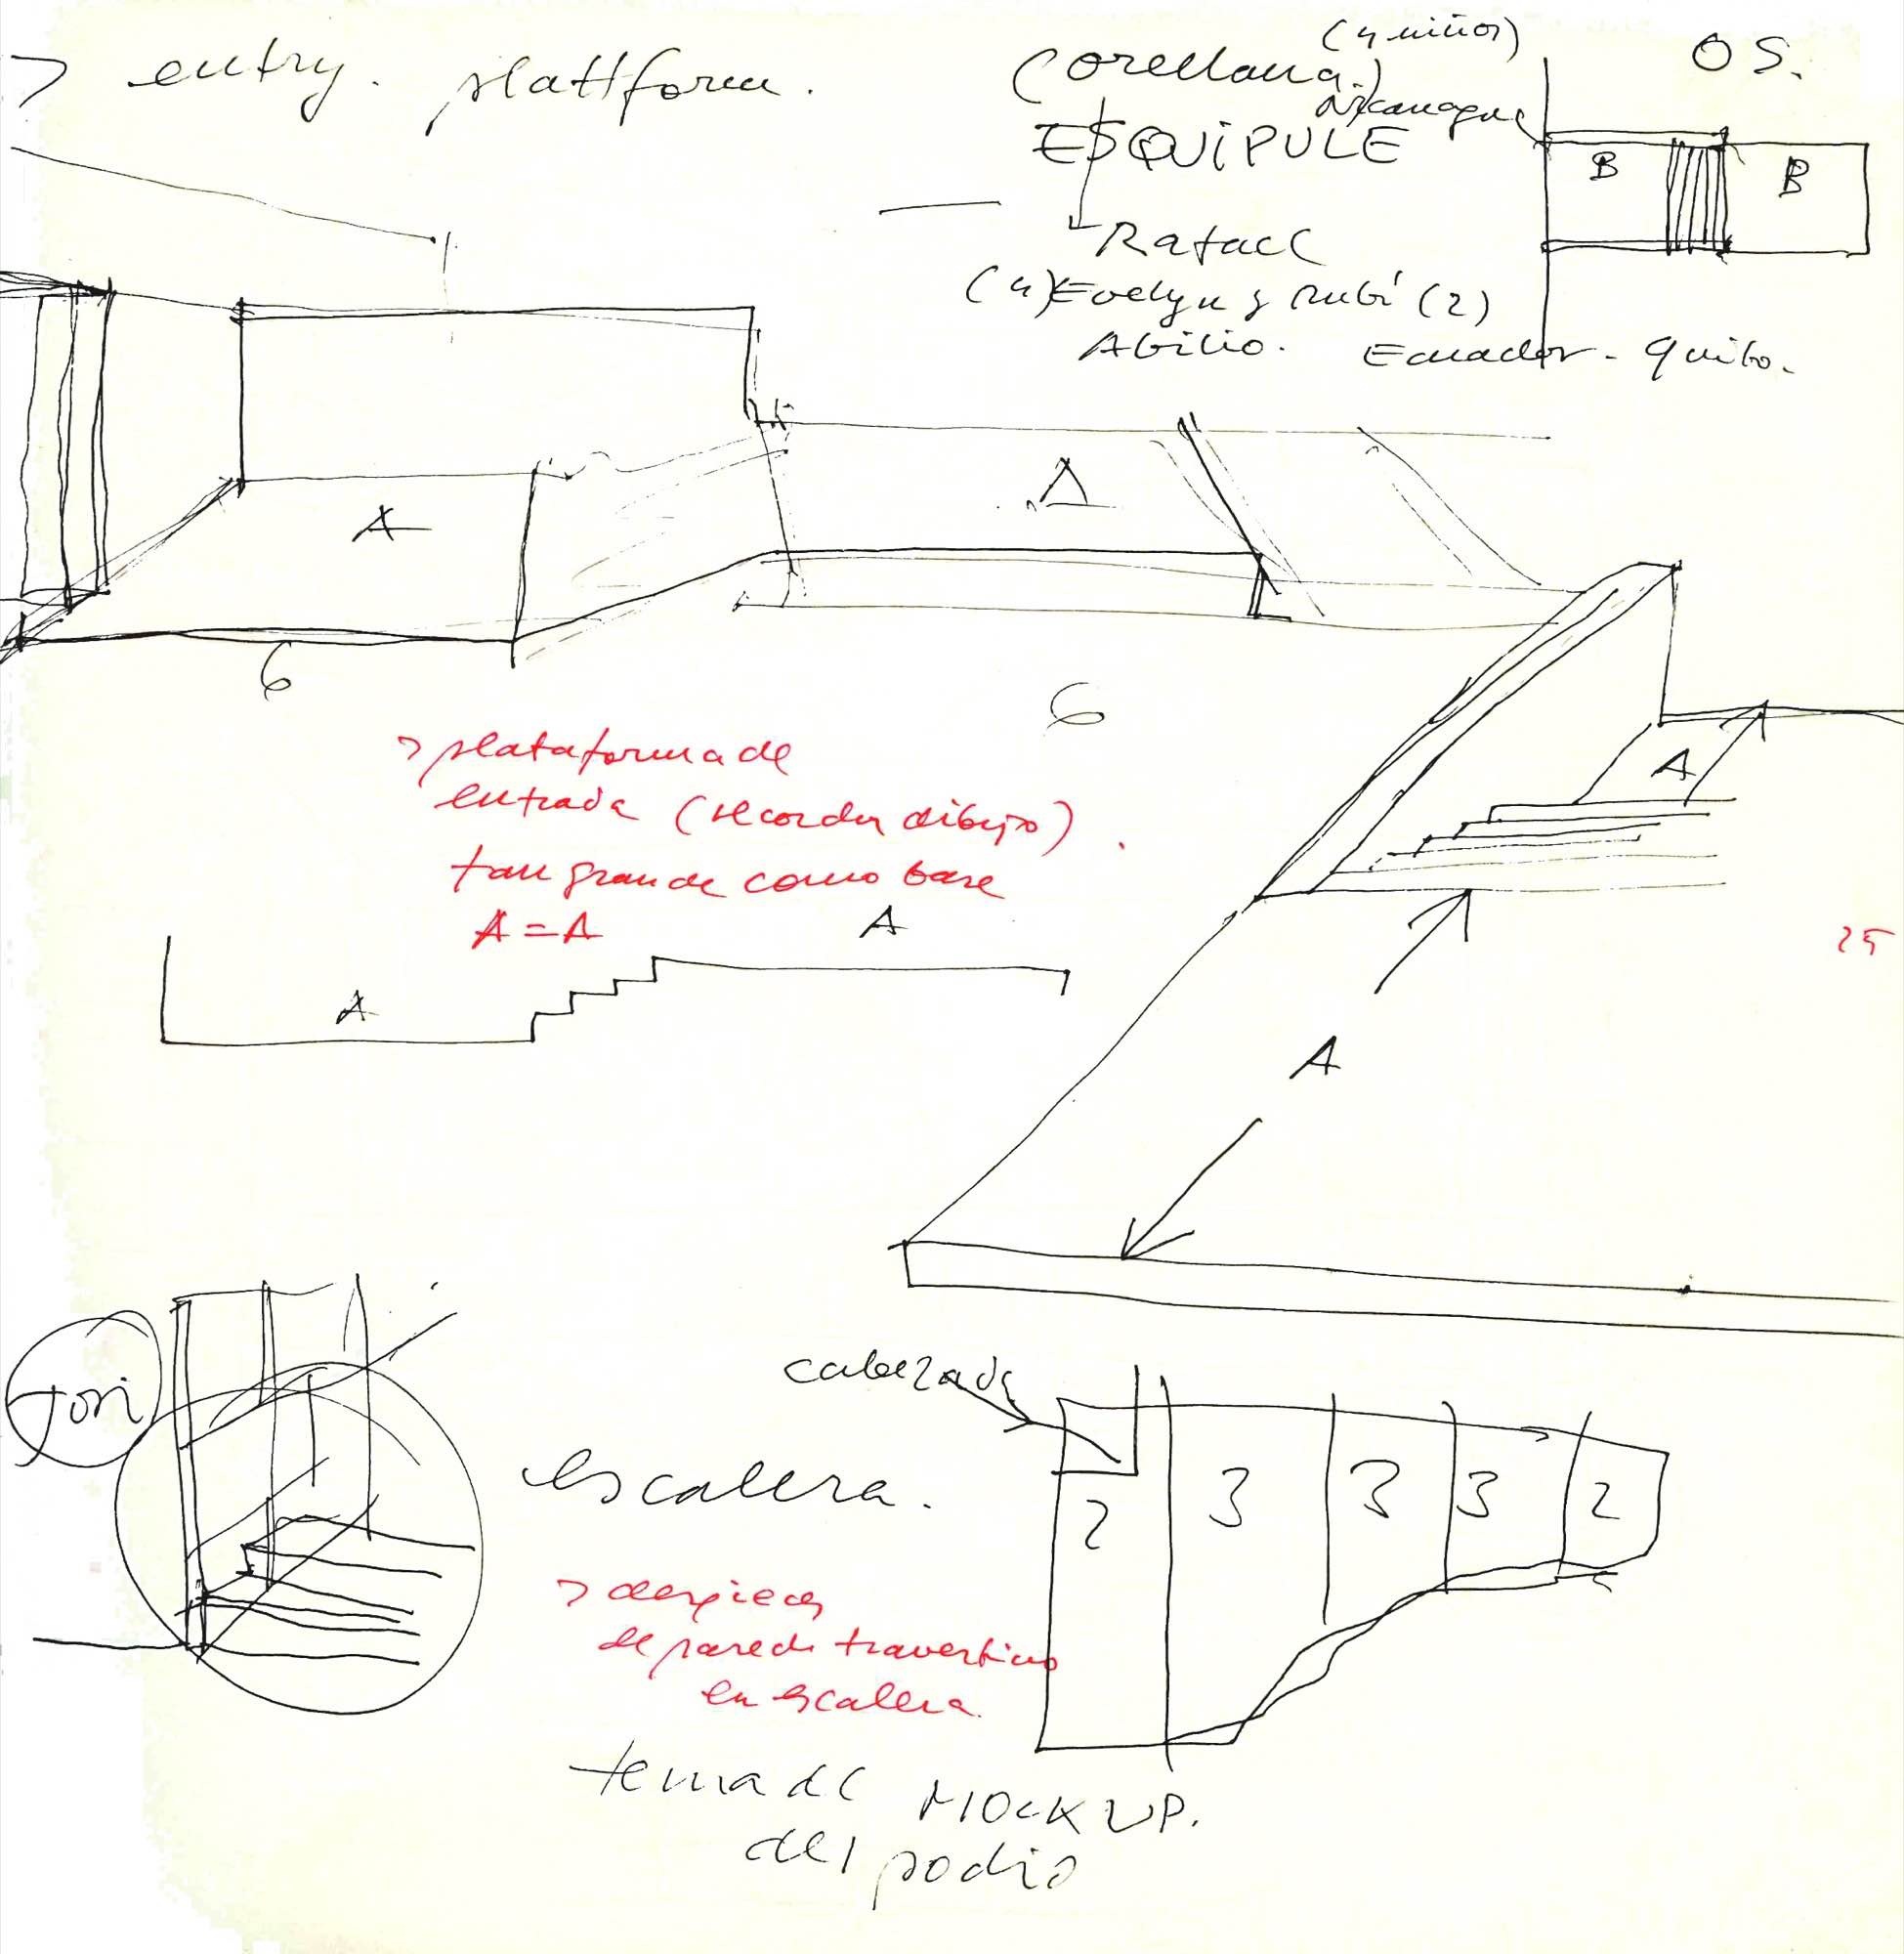 > entry. plattform.
(4 niños)
OS.
(orellana.)
Nicaragua
ESQUIPULE
B
B
Rafael
(4) Evelyn y Rubí (2)
Abilio. Ecuador - quito.
A
A
6
6
> plataforma de
entrada (recordar dibujo).
tan grande como base
A = A
A
A
A
25
A
Tori
cabezada
escalera.
2
3
3
3
2
> despiece
de pared travertino
en escalera.
tema de MOCK UP.
del podio